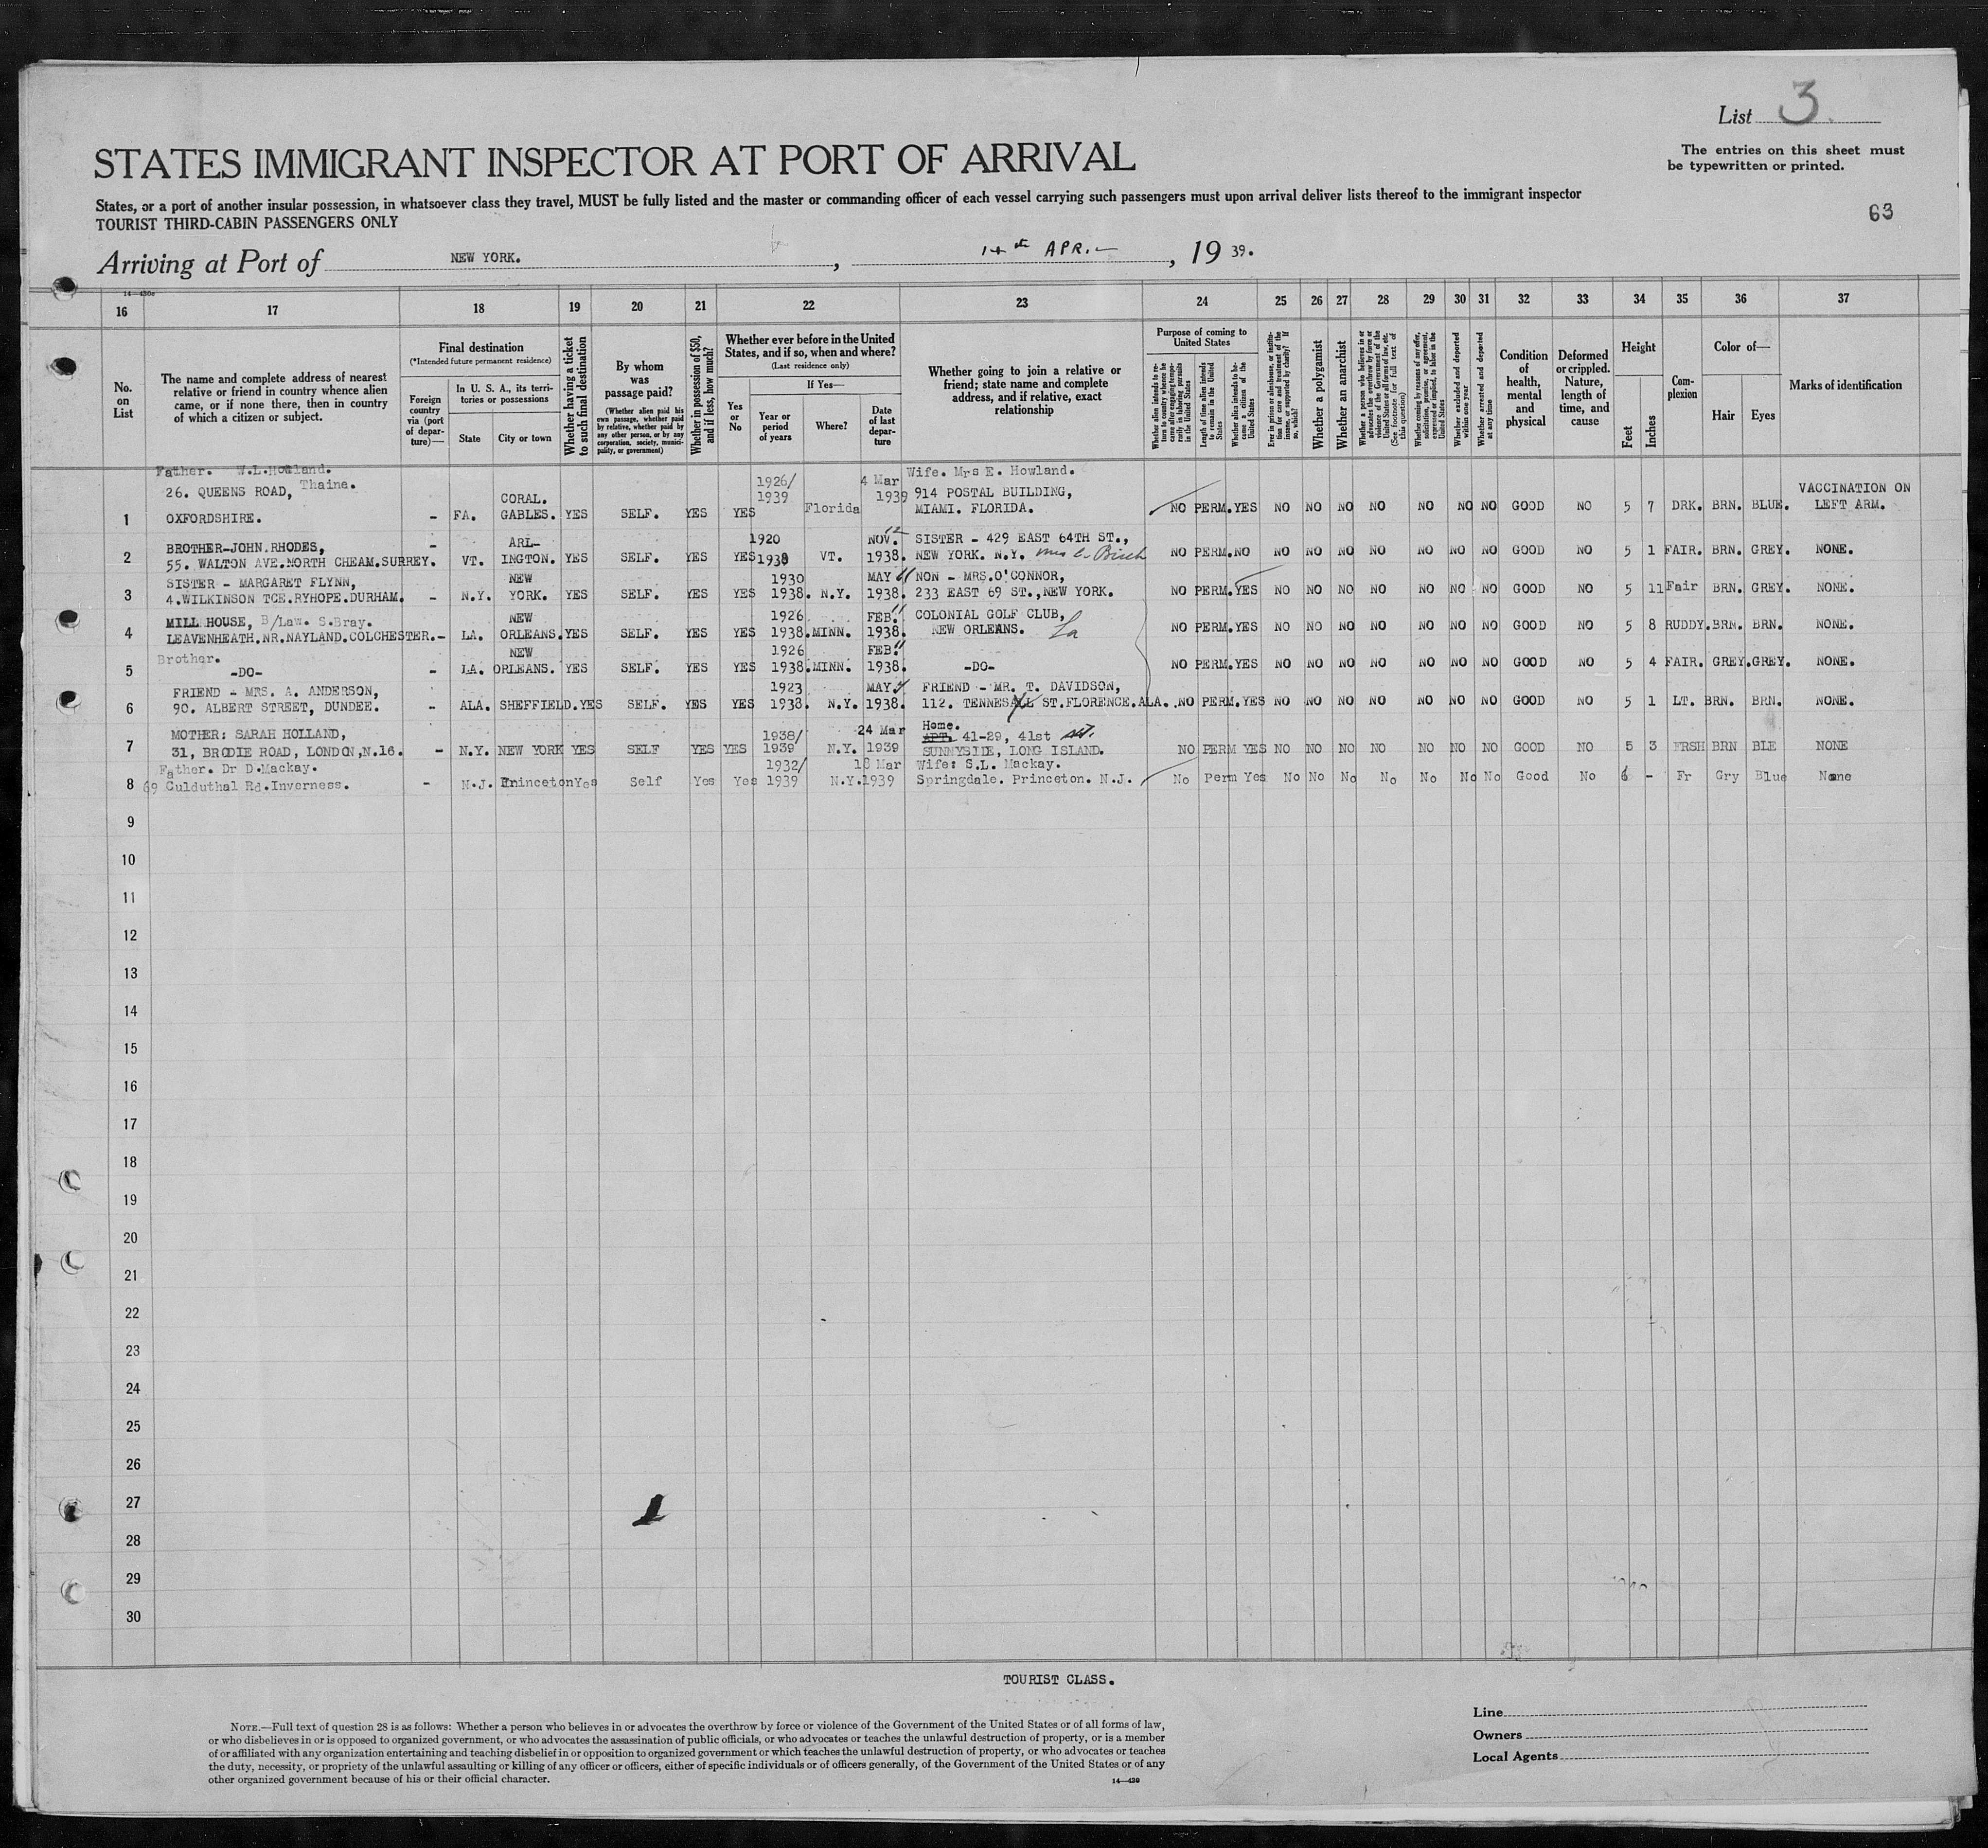 List 3.
The entries on this sheet must
be typewritten or printed.
STATES IMMIGRANT INSPECTOR AT PORT OF ARRIVAL
States, or a port of another insular possession, in whatsoever class they travel, MUST be fully listed and the master or commanding officer of each vessel carrying such passengers must upon arrival deliver lists thereof to the immigrant inspector
TOURIST THIRD-CABIN PASSENGERS ONLY
63
Arriving at Port of NEW YORK. , 14th APR. , 19 39.
14—430e
16 17 18 19 20 21 22 23 24 25 26 27 28 29 30 31 32 33 34 35 36 37
No. on List
The name and complete address of nearest relative or friend in country whence alien came, or if none there, then in country of which a citizen or subject.
Final destination
(*Intended future permanent residence)
Foreign country via (port of departure)—
In U. S. A., its territories or possessions
State
City or town
Whether having a ticket to such final destination
By whom was passage paid?
(Whether alien paid his own passage, whether paid by relative, whether paid by any other person, or by any corporation, society, municipality, or government)
Whether in possession of $50, and if less, how much?
Whether ever before in the United States, and if so, when and where?
(Last residence only)
Yes or No
If Yes—
Year or period of years
Where?
Date of last departure
Whether going to join a relative or friend; state name and complete address, and if relative, exact relationship
Purpose of coming to United States
Whether alien intends to return to country whence he came after engaging temporarily in laboring pursuits in the United States
Length of time alien intends to remain in the United States
Whether alien intends to become a citizen of the United States
Ever in prison or almshouse, or institution for care and treatment of the insane, or supported by charity? If so, which?
Whether a polygamist
Whether an anarchist
Whether a person who believes in or advocates the overthrow by force or violence of the Government of the United States or all forms of law, etc. (See footnote for full text of this question)
Whether coming by reasons of any offer, solicitation, promise, or agreement, expressed or implied, to labor in the United States
Whether excluded and deported within one year
Whether arrested and deported at any time
Condition of health, mental and physical
Deformed or crippled. Nature, length of time, and cause
Height
Feet
Inches
Complexion
Color of—
Hair
Eyes
Marks of identification
Father. W.L.Howland.
26. QUEENS ROAD, Thaine.
1 OXFORDSHIRE. – FA. CORAL. GABLES. YES SELF. YES YES 1926/ 1939 Florida 4 Mar 1939 Wife. Mrs E. Howland. 914 POSTAL BUILDING, MIAMI. FLORIDA. NO PERM. YES NO NO NO NO NO NO NO GOOD NO 5 7 DRK. BRN. BLUE. VACCINATION ON LEFT ARM.
BROTHER-JOHN.RHODES,
2 55. WALTON AVE.NORTH CHEAM.SURREY. – VT. ARL- INGTON. YES SELF. YES YES 1920 1938 VT. NOV. 12 1938. SISTER – 429 EAST 64TH ST., NEW YORK. N.Y. Mrs C. Birch NO PERM. NO NO NO NO NO NO NO NO GOOD NO 5 1 FAIR. BRN. GREY. NONE.
SISTER – MARGARET FLYNN,
3 4.WILKINSON TCE.RYHOPE.DURHAM. – N.Y. NEW YORK. YES SELF. YES YES 1930 1938. N.Y. MAY 11 1938. NON – MRS.O'CONNOR, 233 EAST 69 ST.,NEW YORK. NO PERM. YES NO NO NO NO NO NO NO GOOD NO 5 11 Fair BRN. GREY. NONE.
MILL HOUSE, B/Law. S.Bray.
4 LEAVENHEATH.NR.NAYLAND.COLCHESTER. – LA. NEW ORLEANS. YES SELF. YES YES 1926 1938. MINN. FEB. 11 1938. COLONIAL GOLF CLUB, NEW ORLEANS. La NO PERM. YES NO NO NO NO NO NO NO GOOD NO 5 8 RUDDY. BRN. BRN. NONE.
Brother.
5 -DO- – LA. NEW ORLEANS. YES SELF. YES YES 1926 1938. MINN. FEB. 11 1938. -DO- NO PERM. YES NO NO NO NO NO NO NO GOOD NO 5 4 FAIR. GREY. GREY. NONE.
FRIEND – MRS. A. ANDERSON,
6 90. ALBERT STREET, DUNDEE. – ALA. SHEFFIELD. YES SELF. YES YES 1923 1938. N.Y. MAY. 1938. FRIEND – MR. T. DAVIDSON, 112. ST.FLORENCE.ALA. NO PERM. YES NO NO NO NO NO NO NO GOOD NO 5 1 LT. BRN. BRN. NONE.
MOTHER: SARAH HOLLAND,
7 31, BRODIE ROAD, LONDON,N.16. – N.Y. NEW YORK YES SELF YES YES 1938/ 1939 N.Y. 24 Mar 1939 Home. APT. 41-29, 41st St. SUNNYSIDE, LONG ISLAND. NO PERM YES NO NO NO NO NO NO NO GOOD NO 5 3 FRSH BRN BLE NONE
Father. Dr D.Mackay.
8 69 Culduthal Rd.Inverness. – N.J. Princeton Yes Self Yes Yes 1932/ 1939 N.Y. 18 Mar 1939 Wife: S.L. Mackay. Springdale. Princeton. N.J. No Perm Yes No No No No No No No Good No 6 – Fr Gry Blue None
9
10
11
12
13
14
15
16
17
18
19
20
21
22
23
24
25
26
27
28
29
30
TOURIST CLASS.
Line
Owners
Local Agents
NOTE.—Full text of question 28 is as follows: Whether a person who believes in or advocates the overthrow by force or violence of the Government of the United States or of all forms of law,
or who disbelieves in or is opposed to organized government, or who advocates the assassination of public officials, or who advocates or teaches the unlawful destruction of property, or is a member
of or affiliated with any organization entertaining and teaching disbelief in or opposition to organized government or which teaches the unlawful destruction of property, or who advocates or teaches
the duty, necessity, or propriety of the unlawful assaulting or killing of any officer or officers, either of specific individuals or of officers generally, of the Government of the United States or of any
other organized government because of his or their official character.
14—430